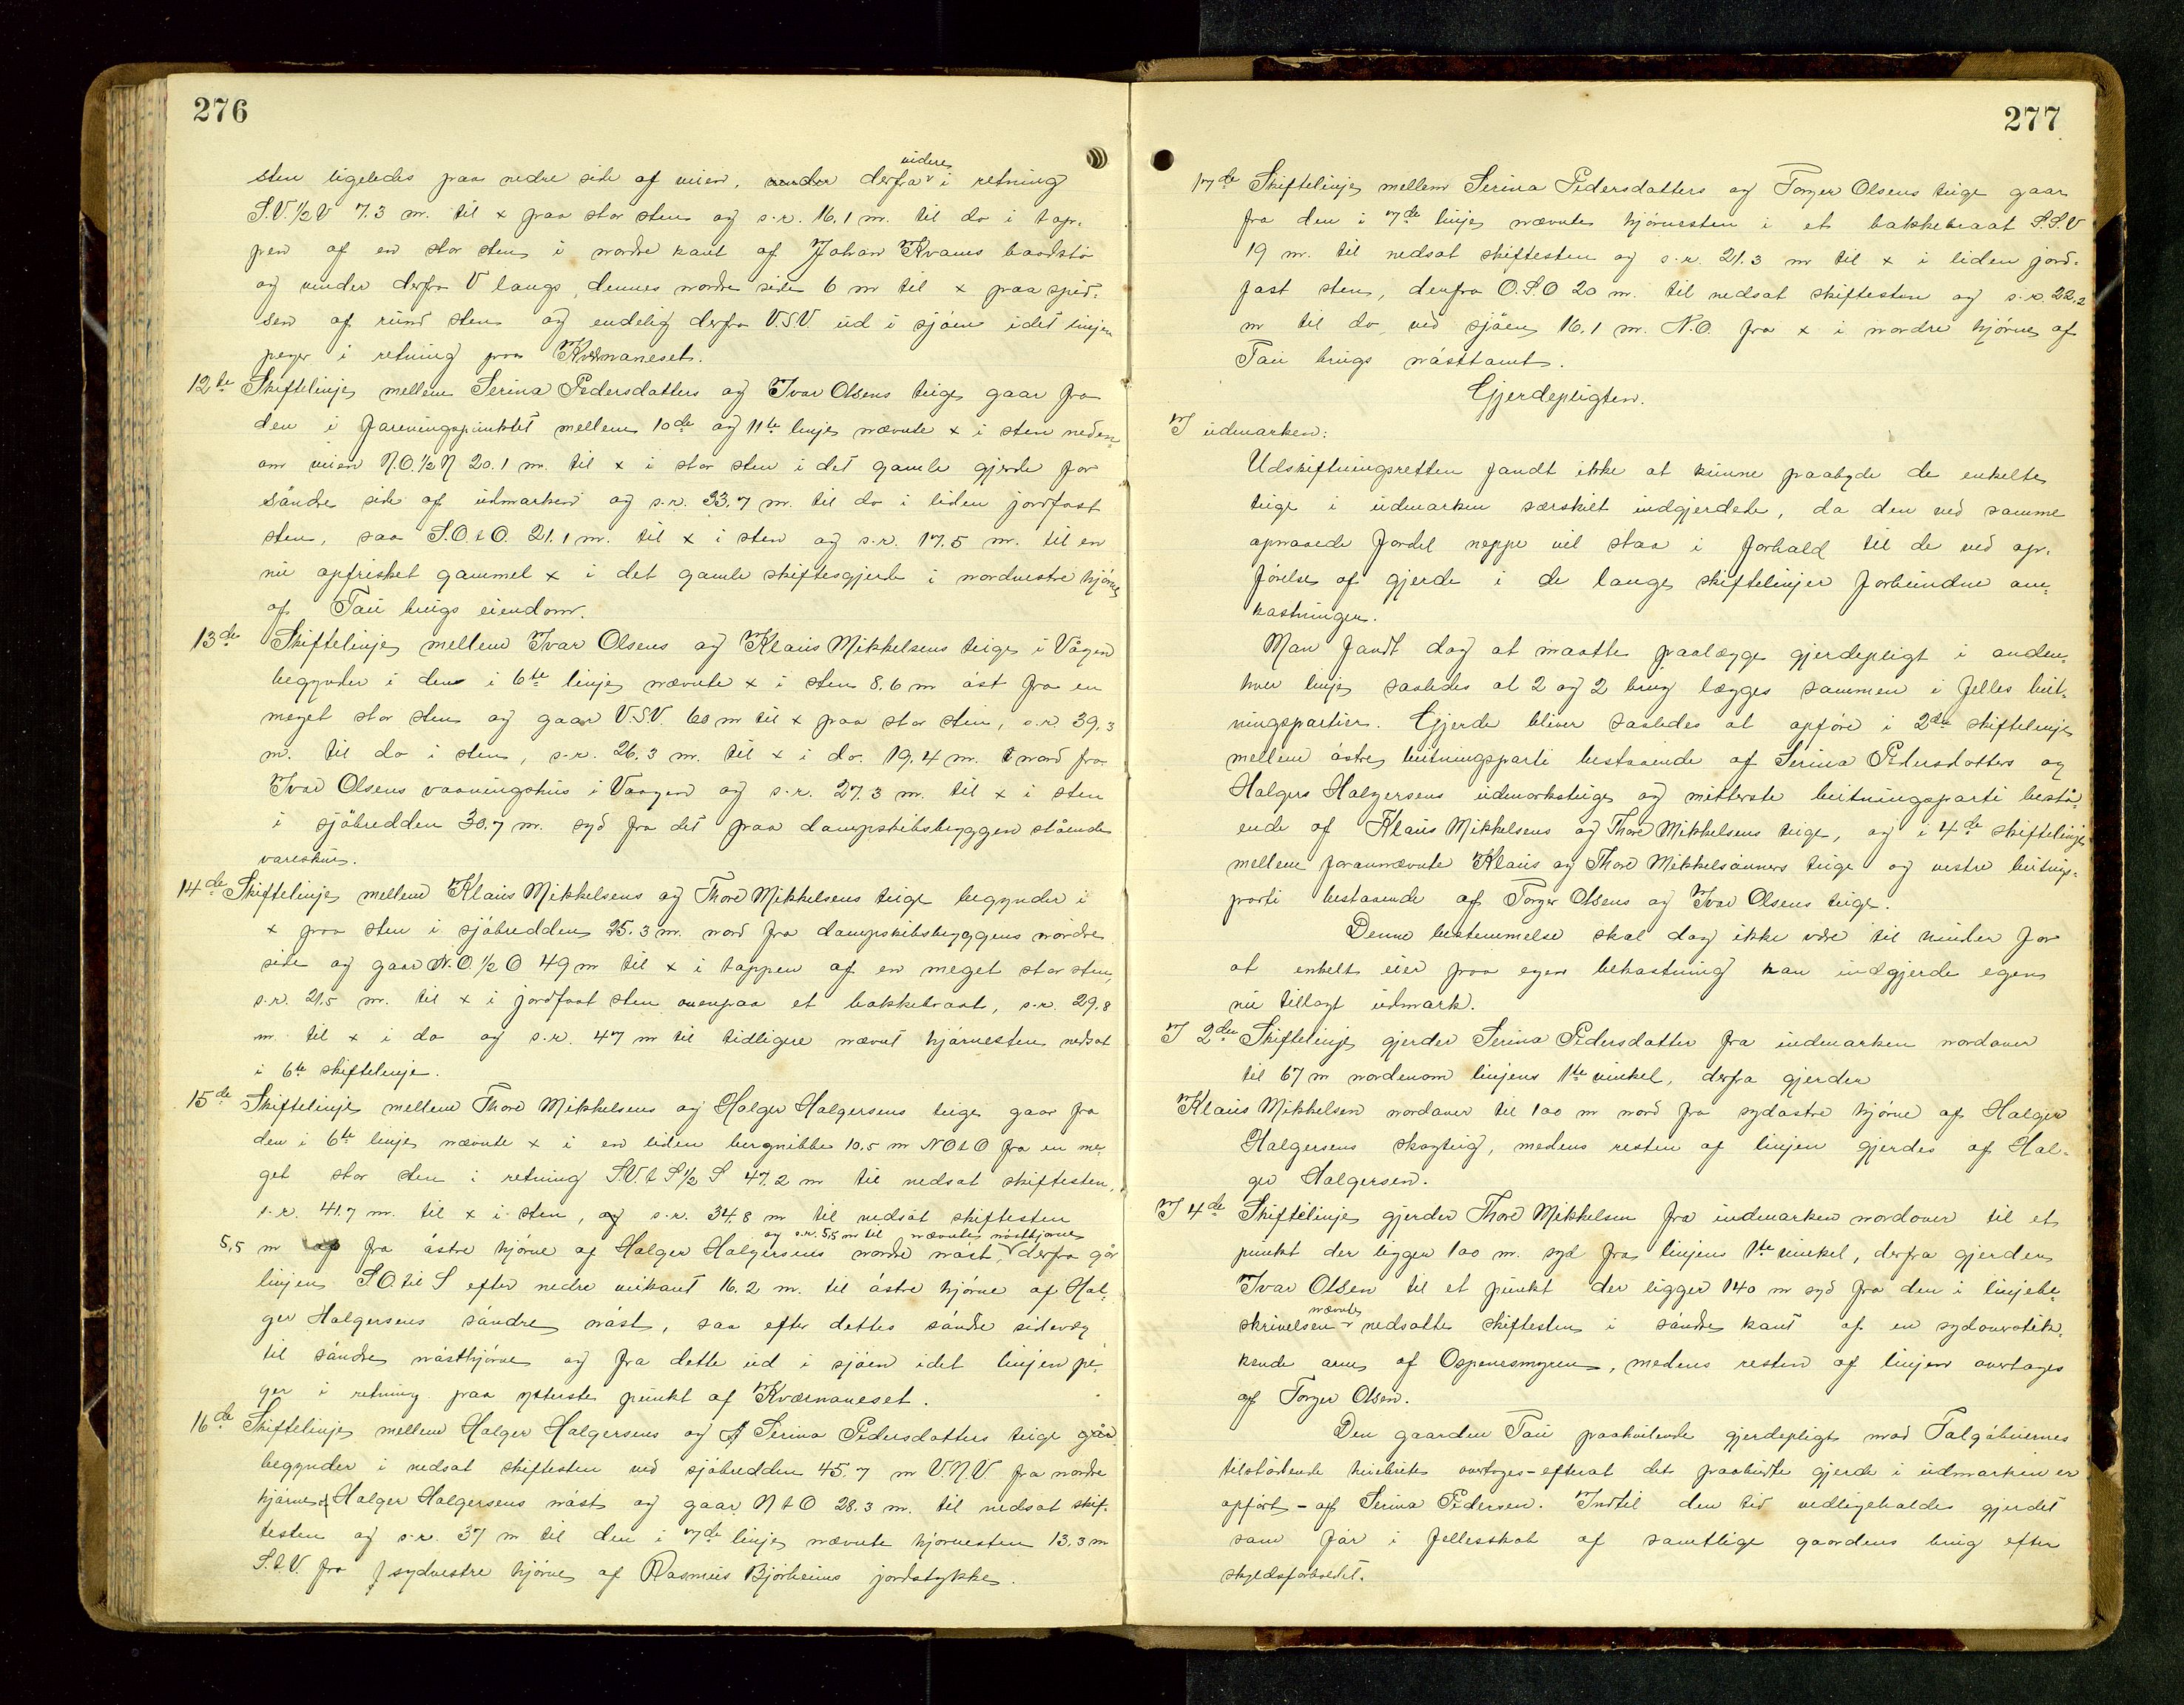 276
sten ligeledes paa nedre side af veien, derfra videre i retning
S.V.½V 7.3 m. til x paa stor sten og s.r. 16.1 m. til do i top-
pen af en stor sten i nordre kant af Johan Kvams baadstø
og videre derfra V langs dennes nordre side 6 m til x paa spid-
sen af rund sten og endelig derfra V.S.V. ud i sjøen idet linjen
peger i retning paa Kværnaneset.
12te Skiftelinje mellem Serina Pedersdatters og Ivar Olsens teige gaar fra
den i foreningspunktet mellem 10de og 11te linje nævnte x i sten neden-
om veien N.O.½N 20.1 m. til x i stor sten i det gamle gjerde for
søndre side af udmarken og s.r. 33.7 m. til do i liden jordfast
sten, saa S.O.t.O. 21.1 m. til x i sten og s.r. 17.5 m. til en
nu opfrisket gammel x i det gamle skiftesgjerde i nordvestre hjørne
af Tau brugs eiendom.
13de Skiftelinje mellem Ivar Olsens og Klaus Mikkelsens teige i Vågen
begynder i den i 6te linje nævnte x i sten 8.6 m øst fra en
meget stor sten og gaar V.S.V. 60 m til x paa stor sten, s.r. 39.3
m. til do i sten, s.r. 26.3 m. til x i do. 19.4 m. nord fra
Ivar Olsens vaaningshus i Vaagen og s.r. 27.3 m. til x i sten
i sjøbredden 30.7 m. syd fra det paa dampskibsbryggen stående
vareskur.
14de Skiftelinje mellem Klaus Mikkelsens og Thore Mikkelsens teige begynder i
x paa sten i sjøbredden 25.3 m. nord fra dampskibsbryggens nordre
side og gaar N.O.½O 49 m til x i toppen af en meget stor sten,
s.r. 21.5 m. til x i jordfast sten ovenpaa et bakkebraat, s.r. 29.8
m. til x i do og s.r. 47 m til tidligere nævnt hjørnesten nedsat
i 6te skiftelinje.
15de Skiftelinje mellem Thore Mikkelsens og Holger Holgersens teige gaar fra
den i 6te linje nævnte x i en liden bergnibbe 10.5 m NOtO fra en me-
get stor sten i retning S.V.t.S½S 47.2 m til nedsat skiftesten,
s.r. 41.7 m. til x i sten, og s.r. 34.8 m til nedsat skiftesten
5,5 m fra østre hjørne af Holger Holgersens nordre nøst, og s.r. 5,5 m til nævnte nøsthjørne derfra går
linjen S.O. til S efter nedre veikant 16.2 m. til østre hjørne af Hol-
ger Holgersens søndre nøst, saa efter dettes søndre sidevæg
til søndre nøsthjørne og fra dette ud i sjøen idet linjen pe-
ger i retning paa yderste punkt af Kværnaneset.
16de Skiftelinje mellem Holger Holgersens og Serina Pedersdatters teige går
begynder i nedsat skiftesten ved sjøbredden 45.7 m V.N.V. fra nordre
hjørne af Holger Holgersens nøst og gaar N t O 28.3 m. til nedsat skif-
testen og s.r. 37 m til den i 7de linje nævnte hjørnesten 13.3 m
S.t.V. fra sydvestre hjørne af Rasmus Bjørheims jordstykke.
277
17de Skiftelinje mellem Serina Pedersdatters og Torger Olsens teige gaar
fra den i 7de linje nævnte hjørnesten i et bakkebraat S.S.V
19 m. til nedsat skiftesten og s.r. 21.3 m til x i liden jord-
fast sten, derfra O.S.O 20 m. til nedsat skiftesten og s.r. 22.2
m til do ved sjøen 16.1 m. N.O. fra x i nordre hjørne af
Tau brugs nøsttomt.
Gjerdepligten.
I udmarken:
Udskiftningsretten fandt ikke at kunne paabyde de enkelte
teige i udmarken særskilt indgjerdede, da den ved samme
opnaaede fordel neppe vil staa i forhold til de ved op-
førelse af gjerde i de lange skiftelinjer forbundne om-
kostninger.
Man fandt dog at maatte paalægge gjerdepligt i anden-
hver linje saaledes at 2 og 2 brug lægges sammen i felles beit-
ningspartier. Gjerde bliver saaledes at opføre i 2den skiftelinje
mellem østre beitningsparti bestaaende af Serina Pedersdatters og
Holgers Holgersens udmarksteige og mitterste beitningsparti bestå-
ende af Klaus Mikkelsens og Thore Mikkelsens teige, og i 4de skiftelinje
mellem forannævnte Klaus og Thore Mikkelsønners teige og vestre beitnings-
parti bestaaende af Torger Olsens og Ivar Olsens teige.
Denne bestemmelse skal dog ikke være til hinder for
at enkelt eier paa egen bekostning kan indgjerde egen
nu tillagt udmark.
I 2den Skiftelinje gjerder Serina Pedersdatter fra indmarken nordover
til 67 m nordenom linjens 1te vinkel, derfra gjerder
Klaus Mikkelsen nordover til 100 m nord fra sydøstre hjørne af Holger
Holgersens skogteig, medens resten af linjen gjerdes af Hol-
ger Holgersen.
I 4de Skiftelinje gjerder Thore Mikkelsen fra indmarken nordover til et
punkt der ligger 100 m. syd fra linjens 1te vinkel, derfra gjerder
Ivar Olsen til et punkt der ligger 140 m syd fra den i linjebe-
skrivelsen nævnte nedsatte skiftesten i søndre kant af en sydoverstik-
kende arm af Ospenesmyren, medens resten af linjen overtages
af Torger Olsen.
Den gaarden Tau paahvilende gjerdepligt mod Talgøbuernes
tilstødende overtages - efterat det paabudte gjerde i udmarken er
opført - af Serina Pedersen. Indtil den tid vedligeholdes gjerdet
som før i fellesskab af samtlige gaardens brug efter
skyldforholdet.